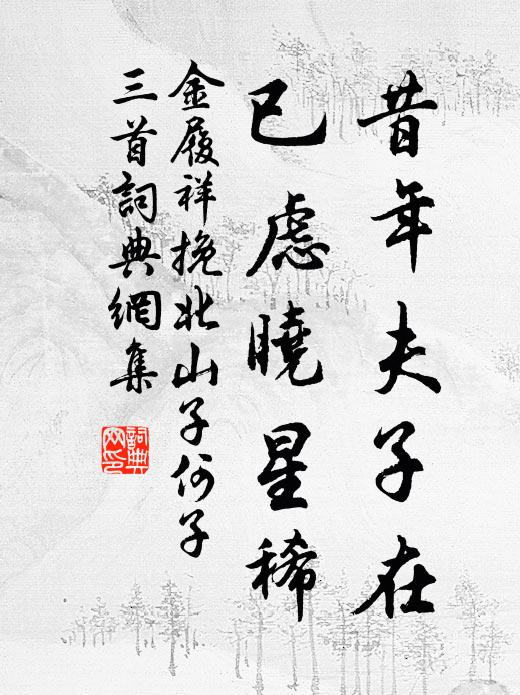 昔年夫子在
已慮曉星稀
金履祥挽北山子何子
三首詞典網集
詞典
网印